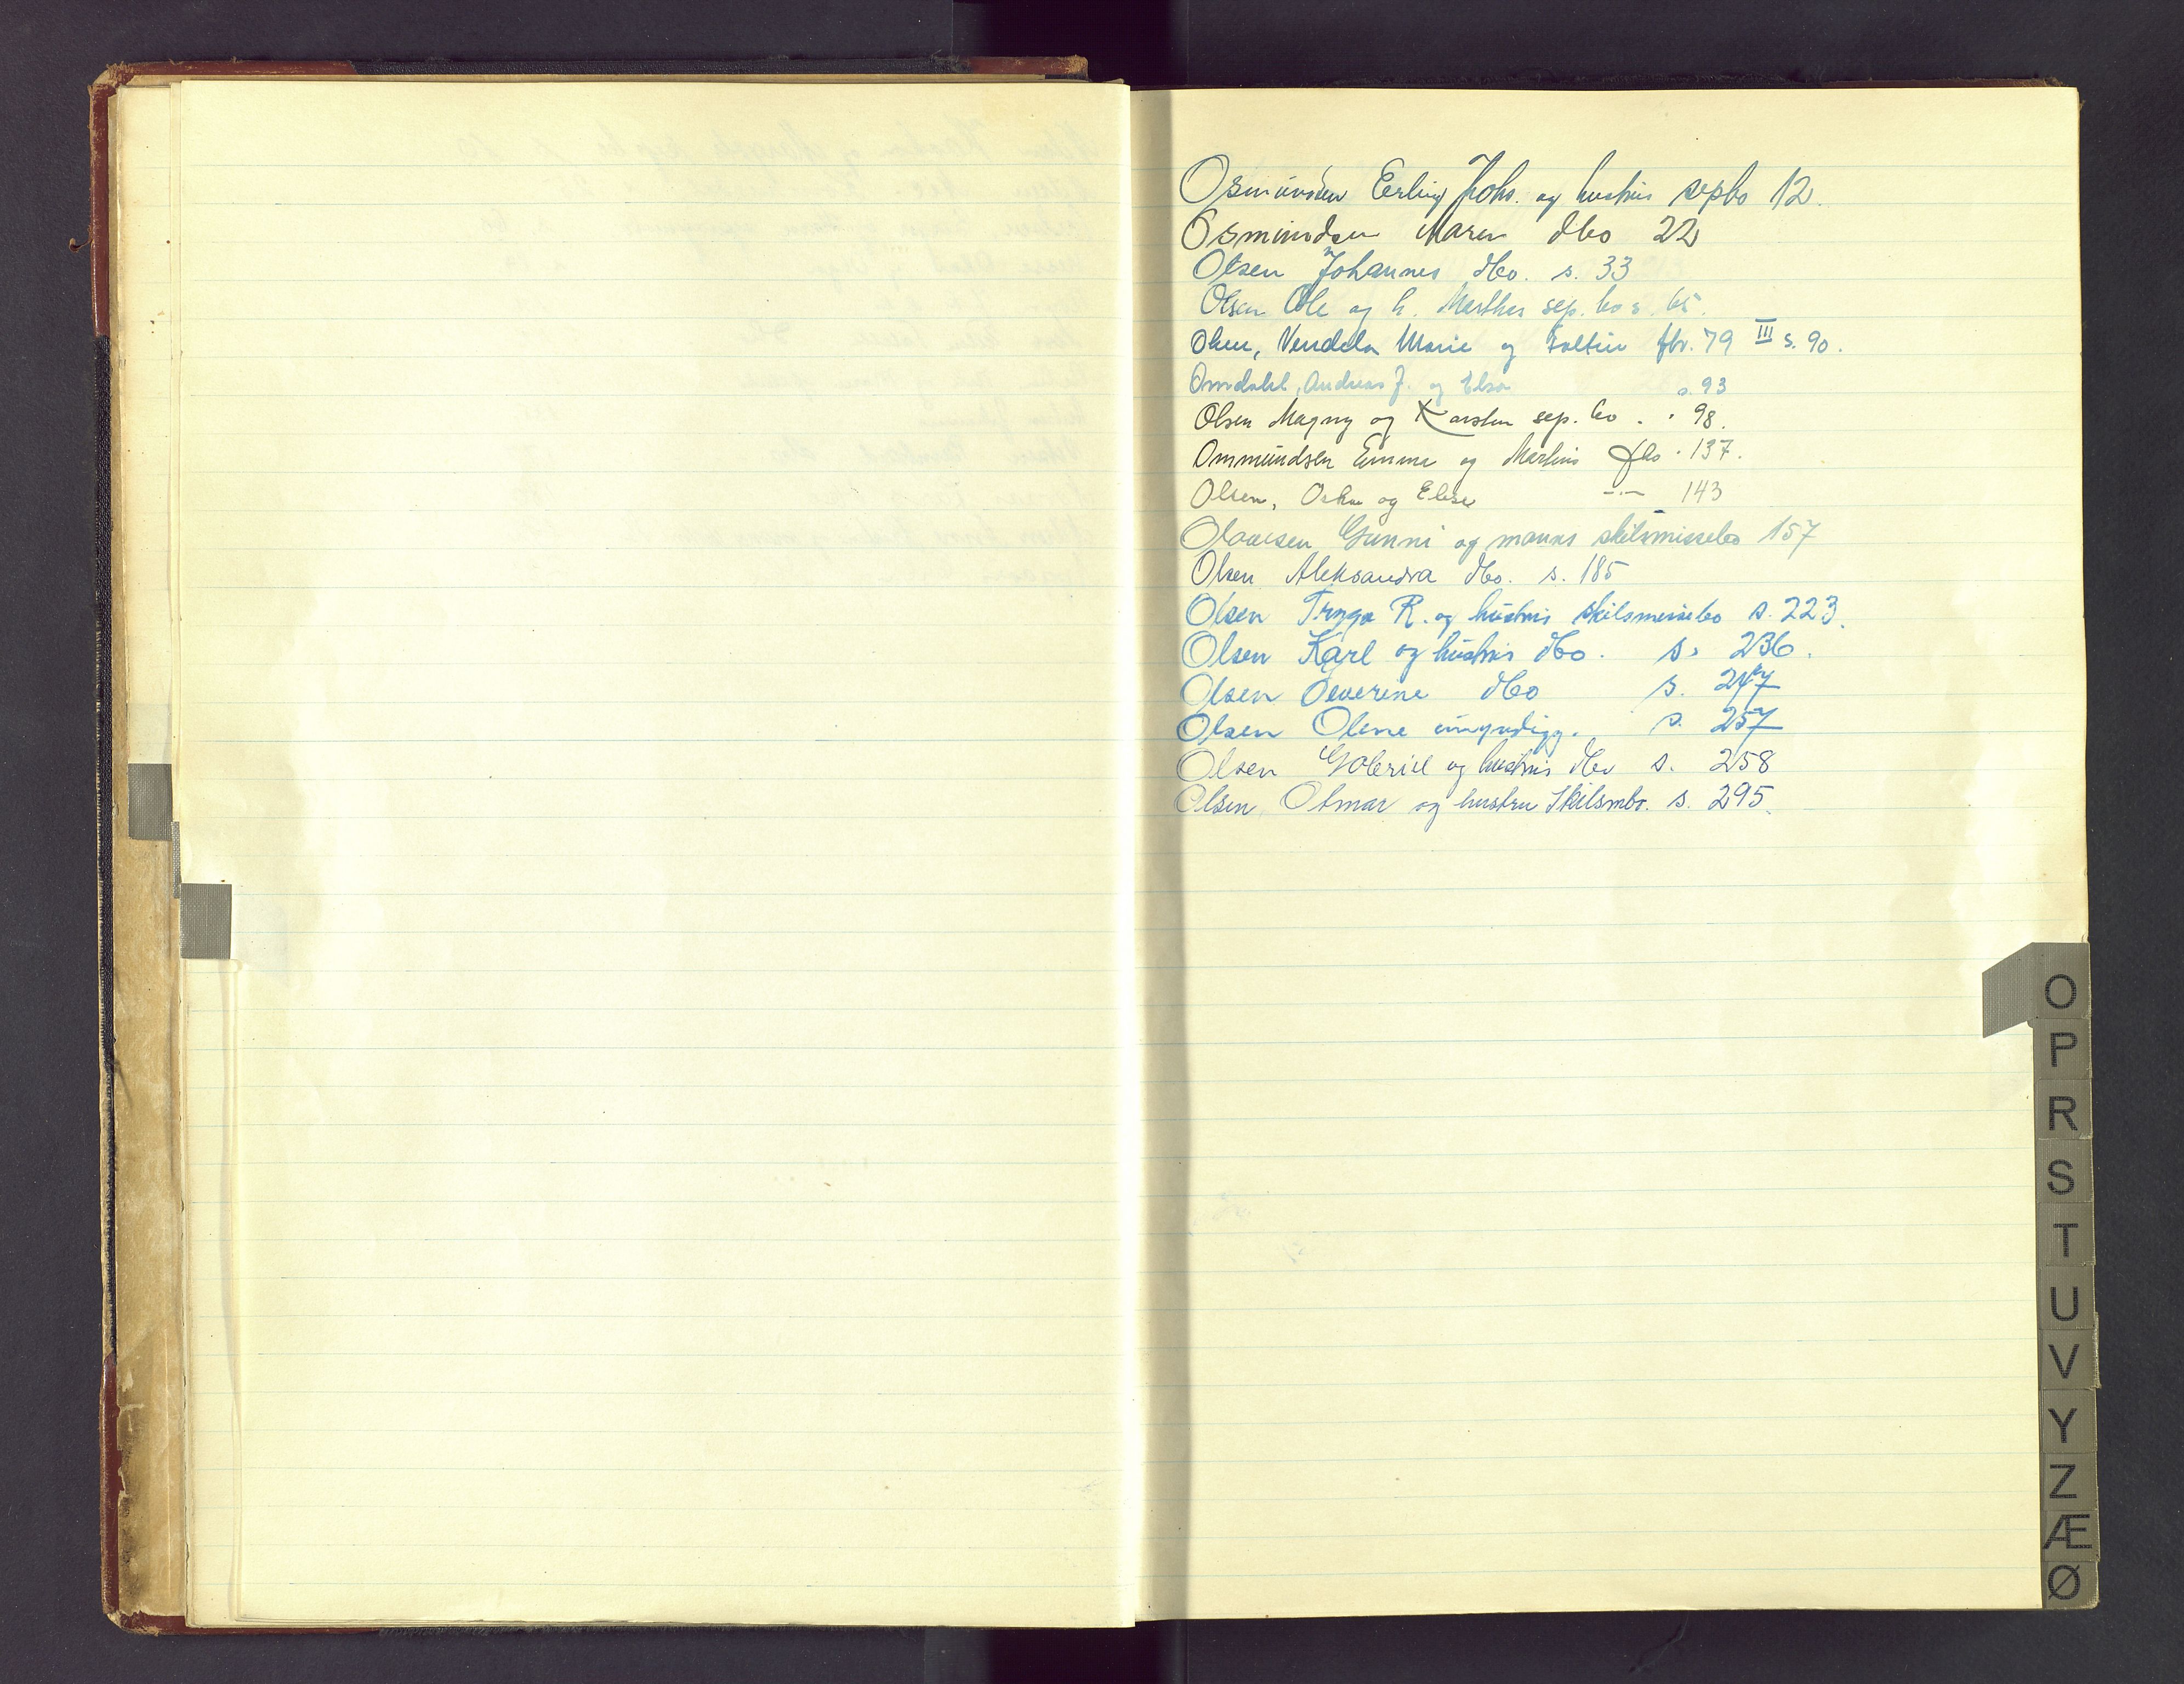 Osmundsen Erling Johs. og hustrus sepbo 12.
Osmundsen Maren dbo 22
Olsen Johannes dbo. s. 33
Olsen Ole og h. Marthes sep. bo s. 65.
Olsen, Vendela Marie og fbr. 79 III s. 90.
Omdahl, Andreas J. og Elsa s. 93
Olsen Magny og Karsten sep. bo . . 98.
Ommundsen Emma og Martins fbo . 137.
Olsen, Oskar og Elise -"- 143
Olaussen Gunni og manns skilsmissebo 157
Olsen Aleksandra dbo. s. 185
Olsen Trygve R. og hustrus skilsmissebo s. 223.
Olsen Karl og hustrus dbo. s. 236.
Olsen Severine dbo s. 247
Olsen Olene umyndigg. s. 257
Olsen Gabriel og hustrus dbo s. 258
Olsen, Otmar og hustru Skilsmbo. s. 295.
O
P
R
S
T
U
V
Y
Z
Æ
Ø